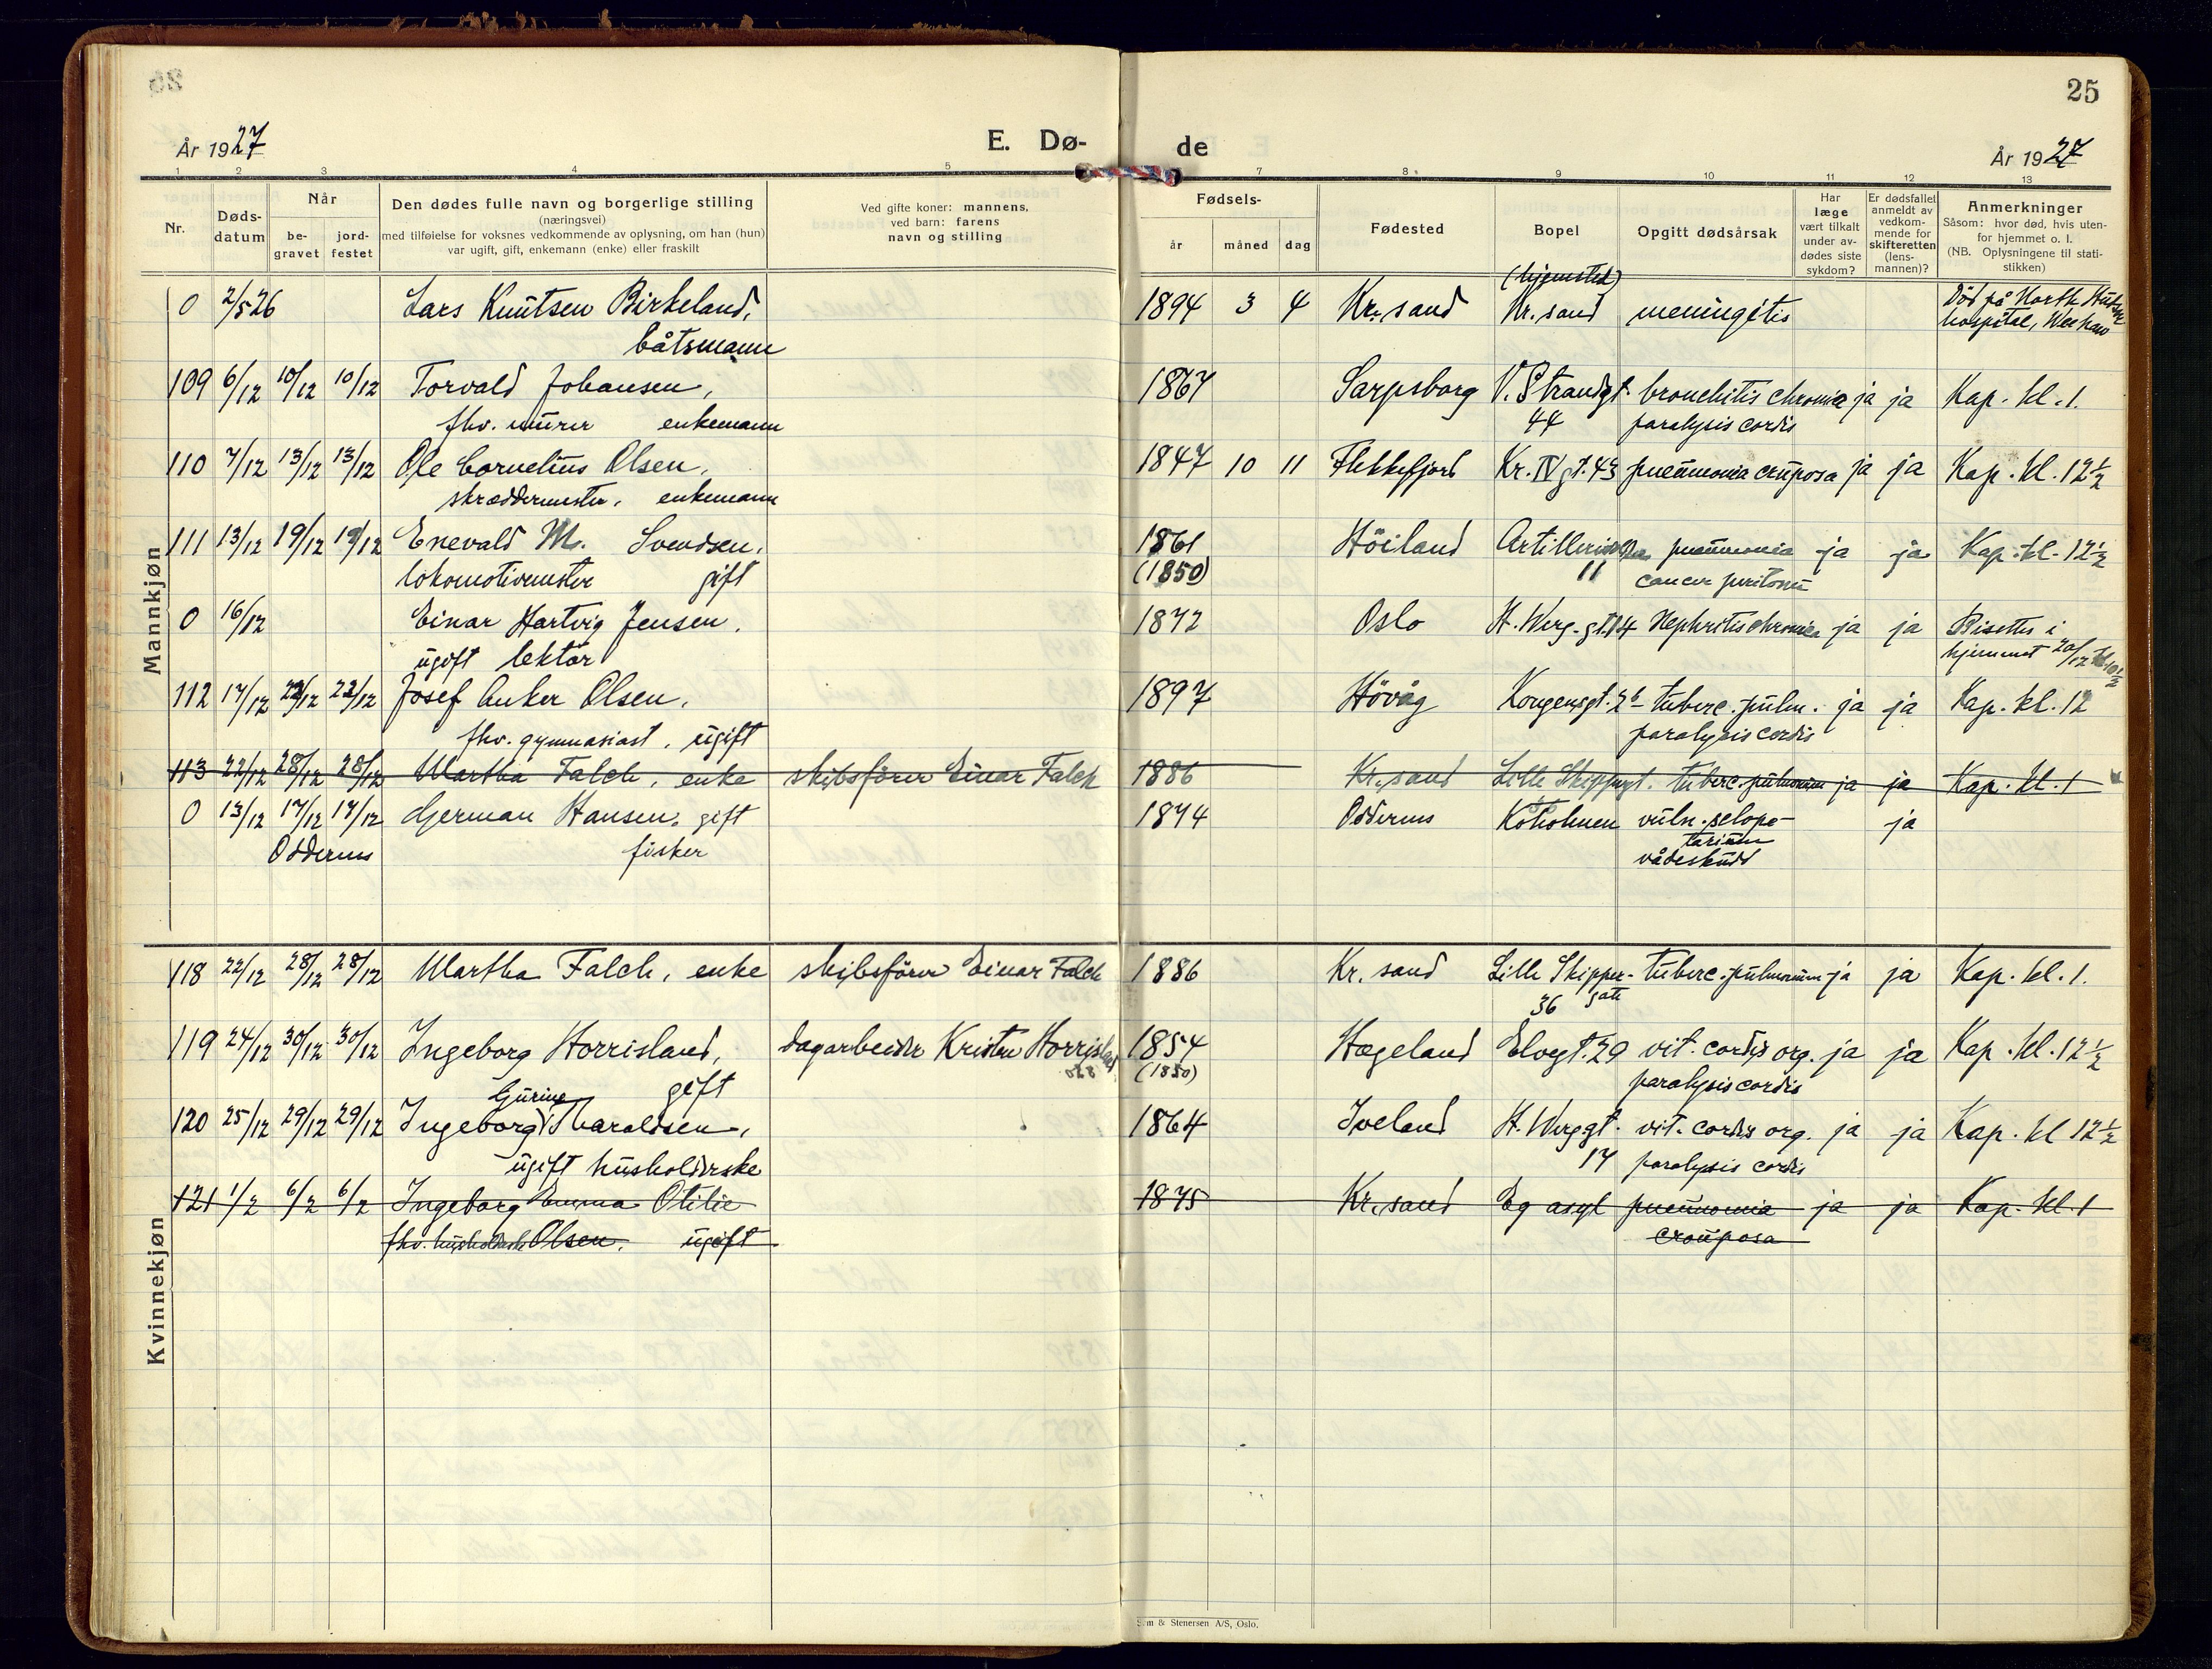 25
År 1927
E. Dø-
de
År 1927
1 2 3 4 5 7 8 9 10 11 12 13
Nr.
Døds-
datum
Når
be-
gravet
jord-
festet
Den dødes fulle navn og borgerlige stilling
(næringsvei)
med tilføielse for voksnes vedkommende av oplysning, om han (hun)
var ugift, gift, enkemann (enke) eller fraskilt
Ved gifte koner: mannens,
ved barn: farens
navn og stilling
Fødsels-
år måned dag
Fødested
Bopel
Opgitt dødsårsak
Har
læge
vært tilkalt
under av-
dødes siste
sykdom?
Er dødsfallet
anmeldt av
vedkom-
mende for
skifteretten
(lens-
mannen)?
Anmerkninger
Såsom: hvor død, hvis uten-
for hjemmet o. l.
(NB. Oplysningene til stati-
stikken)
Mannkjøn
(hjemsted)
0 2/5 26 Lars Knutsen Birkeland, 1894 3 4 Kr.sand Kr.sand meningitis Död på North
båtsmann hospital,
109 6/12 10/12 10/12 Torvald Johansen, 1867 Sarpsborg V. Strandgt. bronchitis chronica ja ja Kap. kl. 1.
fhv. murer enkemann 44 paralysis cordis
110 7/12 13/12 13/12 Ole Cornelius Olsen, 1847 10 11 Flekkefjord Kr. IV gt. 43 pneumonia cruposa ja ja Kap. kl. 12½
skræddermester. enkemann
111 13/12 19/12 19/12 Enevald M. Svendsen, 1861 Höiland pneumonia ja ja Kap. kl. 12½
lokomotivmester gift (1850) 11 cancer peritonii
0 16/12 Einar Hartvig Jensen, 1872 Oslo H. Werg.gt. 14 Nephritis chronica ja ja Bisettes i
ugift lektör hjemmet 20/12 kl. 10½
112 17/12 22/12 22/12 Josef Anker Olsen, 1897 Hövåg Kongensgt. 2b tuberc. pulm. ja ja Kap. kl. 12
fhv. gymnasiast, ugift paralysis cordis
113 22/12 28/12 28/12 Martha Falch, enke skibsförer Einar Falch 1886 Kr.sand Lille Skippergt. tuberc. pulmonum ja ja Kap. kl. 1
0 13/12 17/12 17/12 German Hansen, gift 1874 Oddernes Köholmen vuln. sclopo- ja
Oddernes fisker tarium
vådeskudd
Kvinnekjøn
118 22/12 28/12 28/12 Martha Falch, enke skibsförer Einar Falch 1886 Kr.sand Lille Skipper- tuberc. pulmonum ja ja Kap. kl. 1.
36 gate
119 24/12 30/12 30/12 Ingeborg Horrisland, dagarbeider Kristen Horrisland 1854 Hægeland Elvegt. 29 vit. cordis org. ja ja Kap. kl. 12½
gift (1850) paralysis cordis
Gurine
120 25/12 29/12 29/12 Ingeborg Tharaldsen, 1864 Iveland H. Werggt. vit. cordis org. ja ja Kap. kl 12½
ugift husholderske 17 paralysis cordis
121 1/2 6/2 6/2 Ingeborg Emma Otilie 1875 Kr.sand Eg asyl pneumonia ja ja Kap. kl. 1
fhv. husholderske Olsen. ugift crouposa
& Stenersen A/S, Oslo.